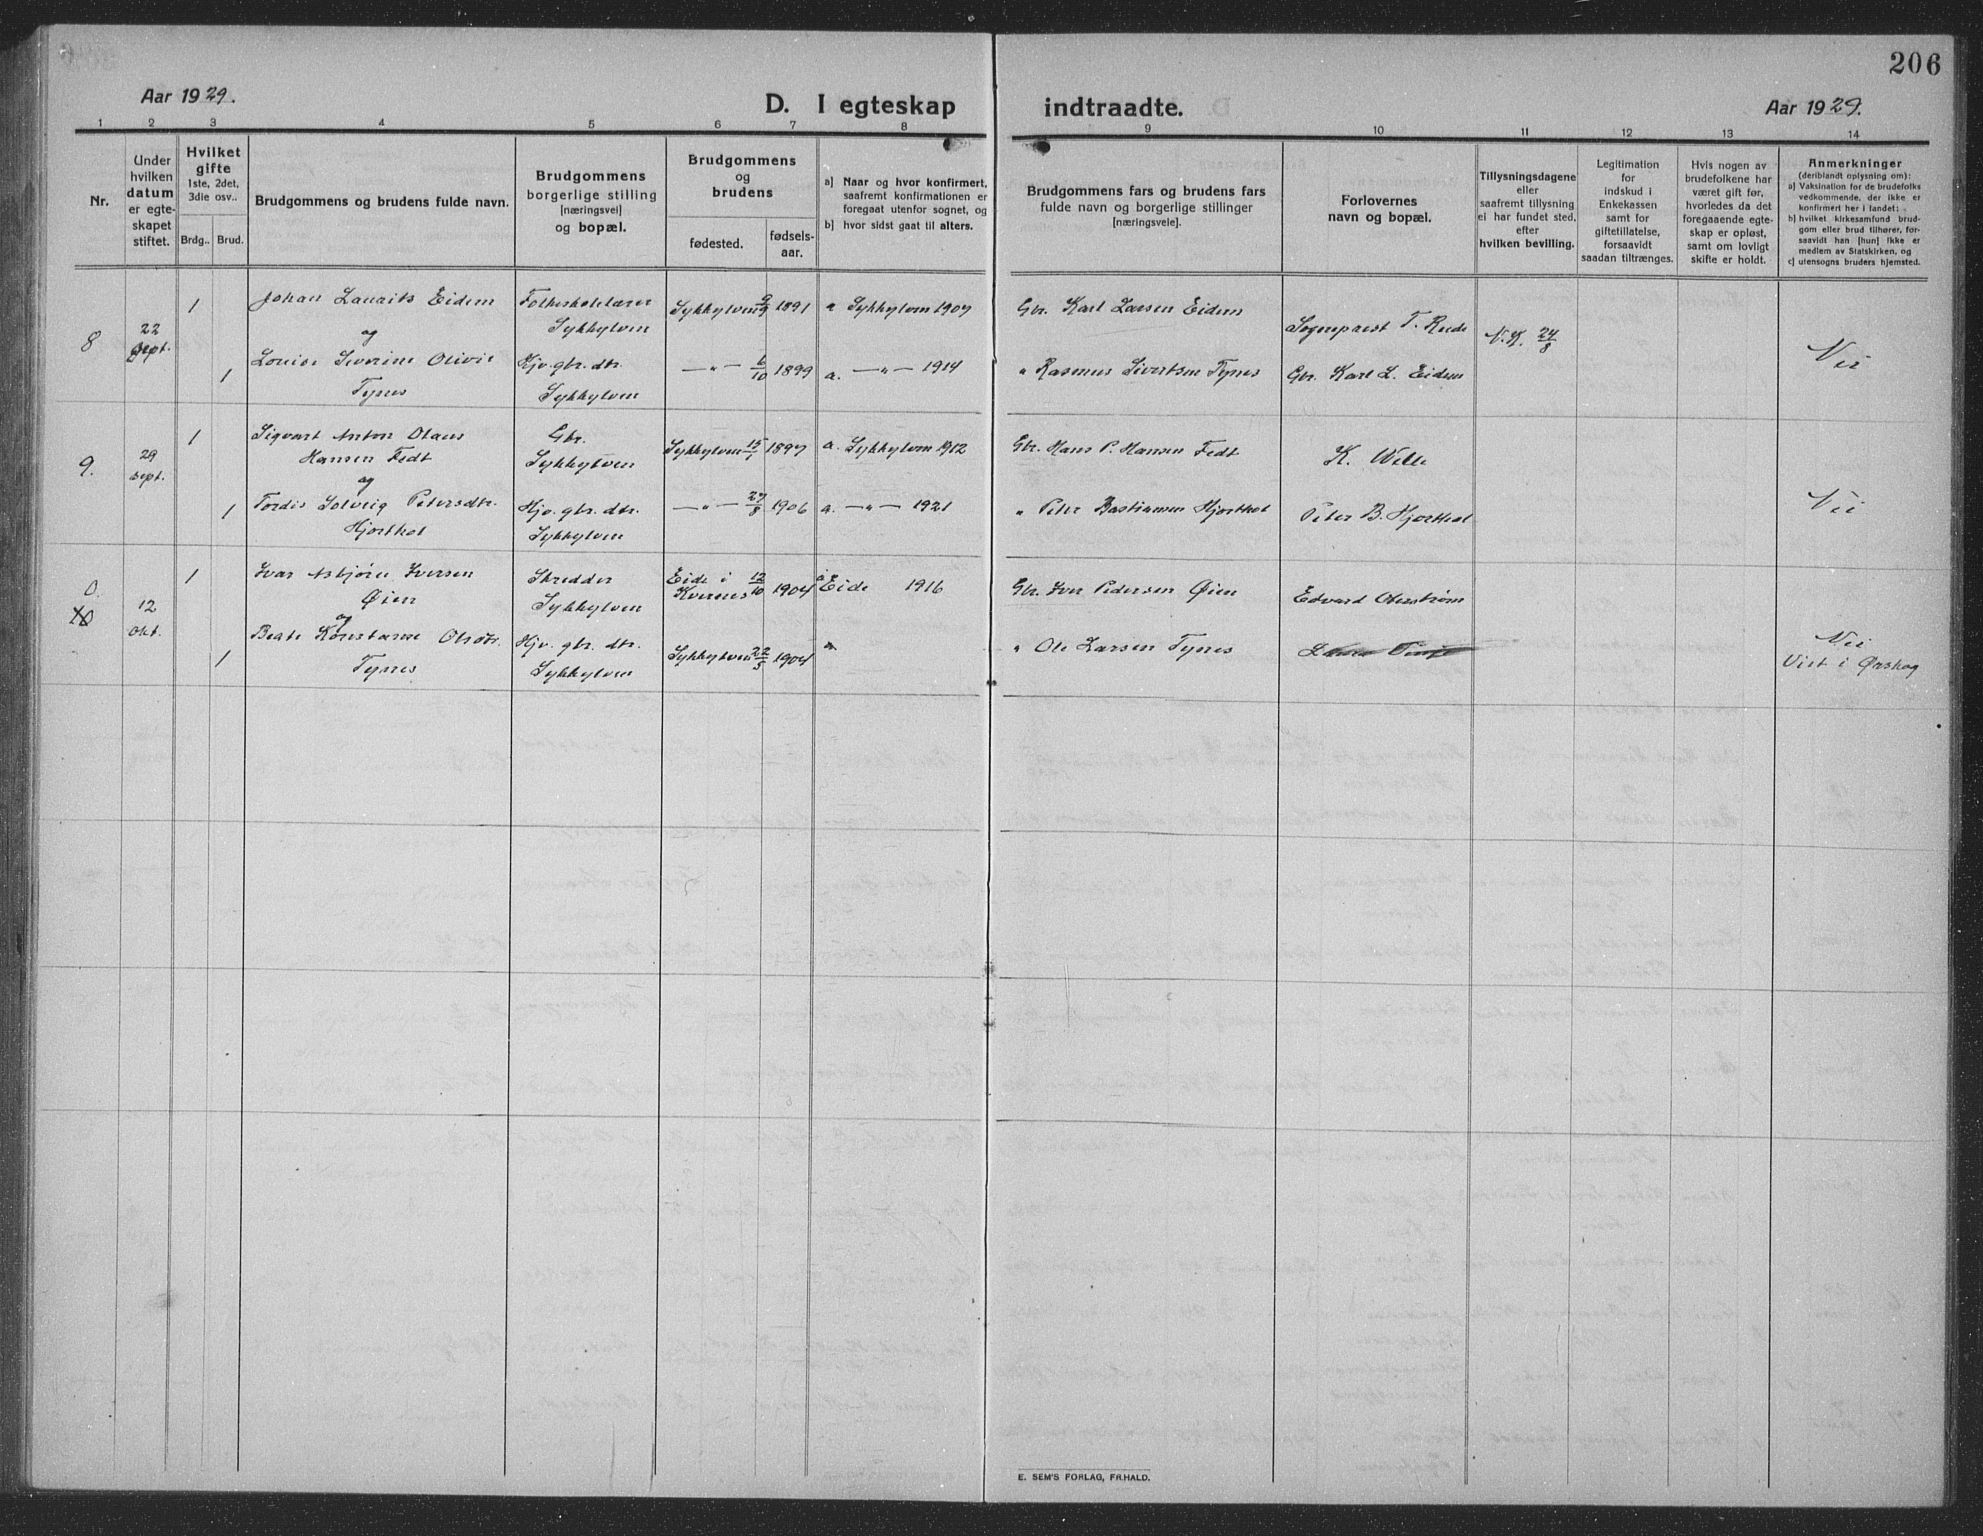 206
Aar 1929.
D. I egteskap
indtraadte.
Aar 1929.
1 2 3 4 5 6 7 8 9 10 11 12 13 14
Nr.
Under
hvilken
datum
er egte-
skapet
stiftet.
Hvilket
gifte
1ste, 2det,
3die osv..
Brdg.. Brud.
Brudgommens og brudens fulde navn.
Brudgommens
borgerlige stilling
[næringsvei]
og bopæl.
Brudgommens
og
brudens
fødested.
fødsels-
aar.
a) Naar og hvor konfirmert,
saafremt konfirmationen er
foregaat utenfor sognet, og
b) hvor sidst gaat til alters.
Brudgommens fars og brudens fars
fulde navn og borgerlige stillinger
[næringsveie].
Forlovernes
navn og bopæl.
Tillysningsdagene
eller
saafremt tillysning
ei har fundet sted,
efter
hvilken bevilling.
Legitimation
for
indskud i
Enkekassen
samt for
giftetillatelse,
forsaavidt
saadan tiltrænges.
Hvis nogen av
brudefolkene har
været gift før,
hvorledes da det
foregaaende egte-
skap er opløst,
samt om lovligt
skifte er holdt.
Anmerkninger
(deriblandt oplysning om):
a) Vaksination for de brudefolks
vedkommende, der ikke er
konfirmert her i landet;
b) hvilket kirkesamfund brud-
gom eller brud tilhører, for-
saavidt han [hun] ikke er
medlem av Statskirken, og
c) utensogns bruders hjemsted.
8
22
Sept.
1
Johan Laurits Eidem
Folkeskolelærer
Sykkylven
Sykkylven 9/9 1891
a Sykkylven 1907
Gbr. Karl Larsen Eidem
Sogneprest T. Rede
N.K. 24/8
og
1
Louise Severine Olivie
Tynes
Hjv. gbr. dtr.
Sykkylven
—„— 6/10 1899
a. —„— 1914
„ Rasmus Sivertsen Tynes
Gbr. Karl L. Eidem
Nei
9.
29
sept.
1
Sigvart Anton Olaus
Hansen Fedt
Gbr.
Sykkylven
Sykkylven 15/1 1897
a. Sykkylven 1912
Gbr. Hans P. Hansen Fedt
K. Welle
og
1
Tordis Solveig Petersdtr.
Hjorthol
Hjv. gbr. dtr.
Sykkylven
—„— 27/8 1906
a. —„— 1921
„ Peter Bastiansen Hjorthol
Peter B. Hjorthol
Nei
10
12
Okt.
1
Ivar Asbjørn Iversen
Øien
Skredder
Sykkylven
Eide i
Kvernes 12/10 1904
a Eide 1916
Gbr. Iver Pedersen Øien
Edvard Oterstrøm
og
1
Beate Konstanse Olsdtr.
Tynes
Hjv. gbr. dtr.
Sykkylven
Sykkylven 22/5 1904
a
„ Ole Larsen Tynes
Nei
Viet i Ørskog
E. SEM'S FORLAG, FR.HALD.